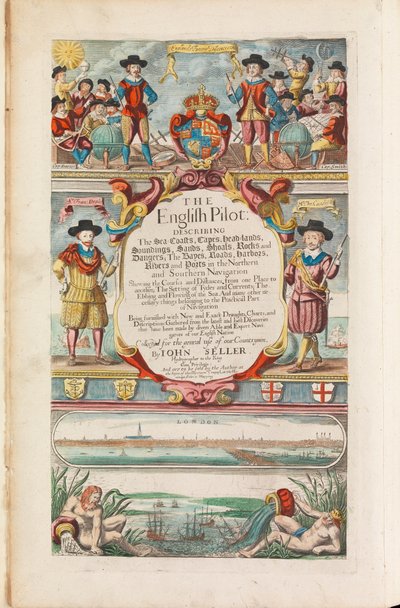 THE
Engliſh Pilot:
DESCRIBING
The Sea-Coaſts, Capes, Head-lands,
Soundings, Sands, Shoals, Rocks and
Dangers, The Bayes, Roads, Harbors,
Rivers and Ports in the Northern
and Southern Navigation
Shewing the Courſes and Diſtances from one Place to
another, The Setting of Tides and Currents, The
Ebbing and Flowing of the Sea. And many other ne-
ceſsary things belonging to the Practical Part
of Navigation
Being furniſhed with New and Exact Draughts, Charts, and
Deſcriptions, Gathered from the lateſt and beſt Diſcoveries
that have been made by divers Able and Expert Navi-
gators of our Engliſh Nation
Collected for the general uſe of our Countrymen,
By IOHN SELLER
Hydrographer to the King
Cum Privilegio
And are to be ſold by the Author at
Cap. Smith.
LONDON